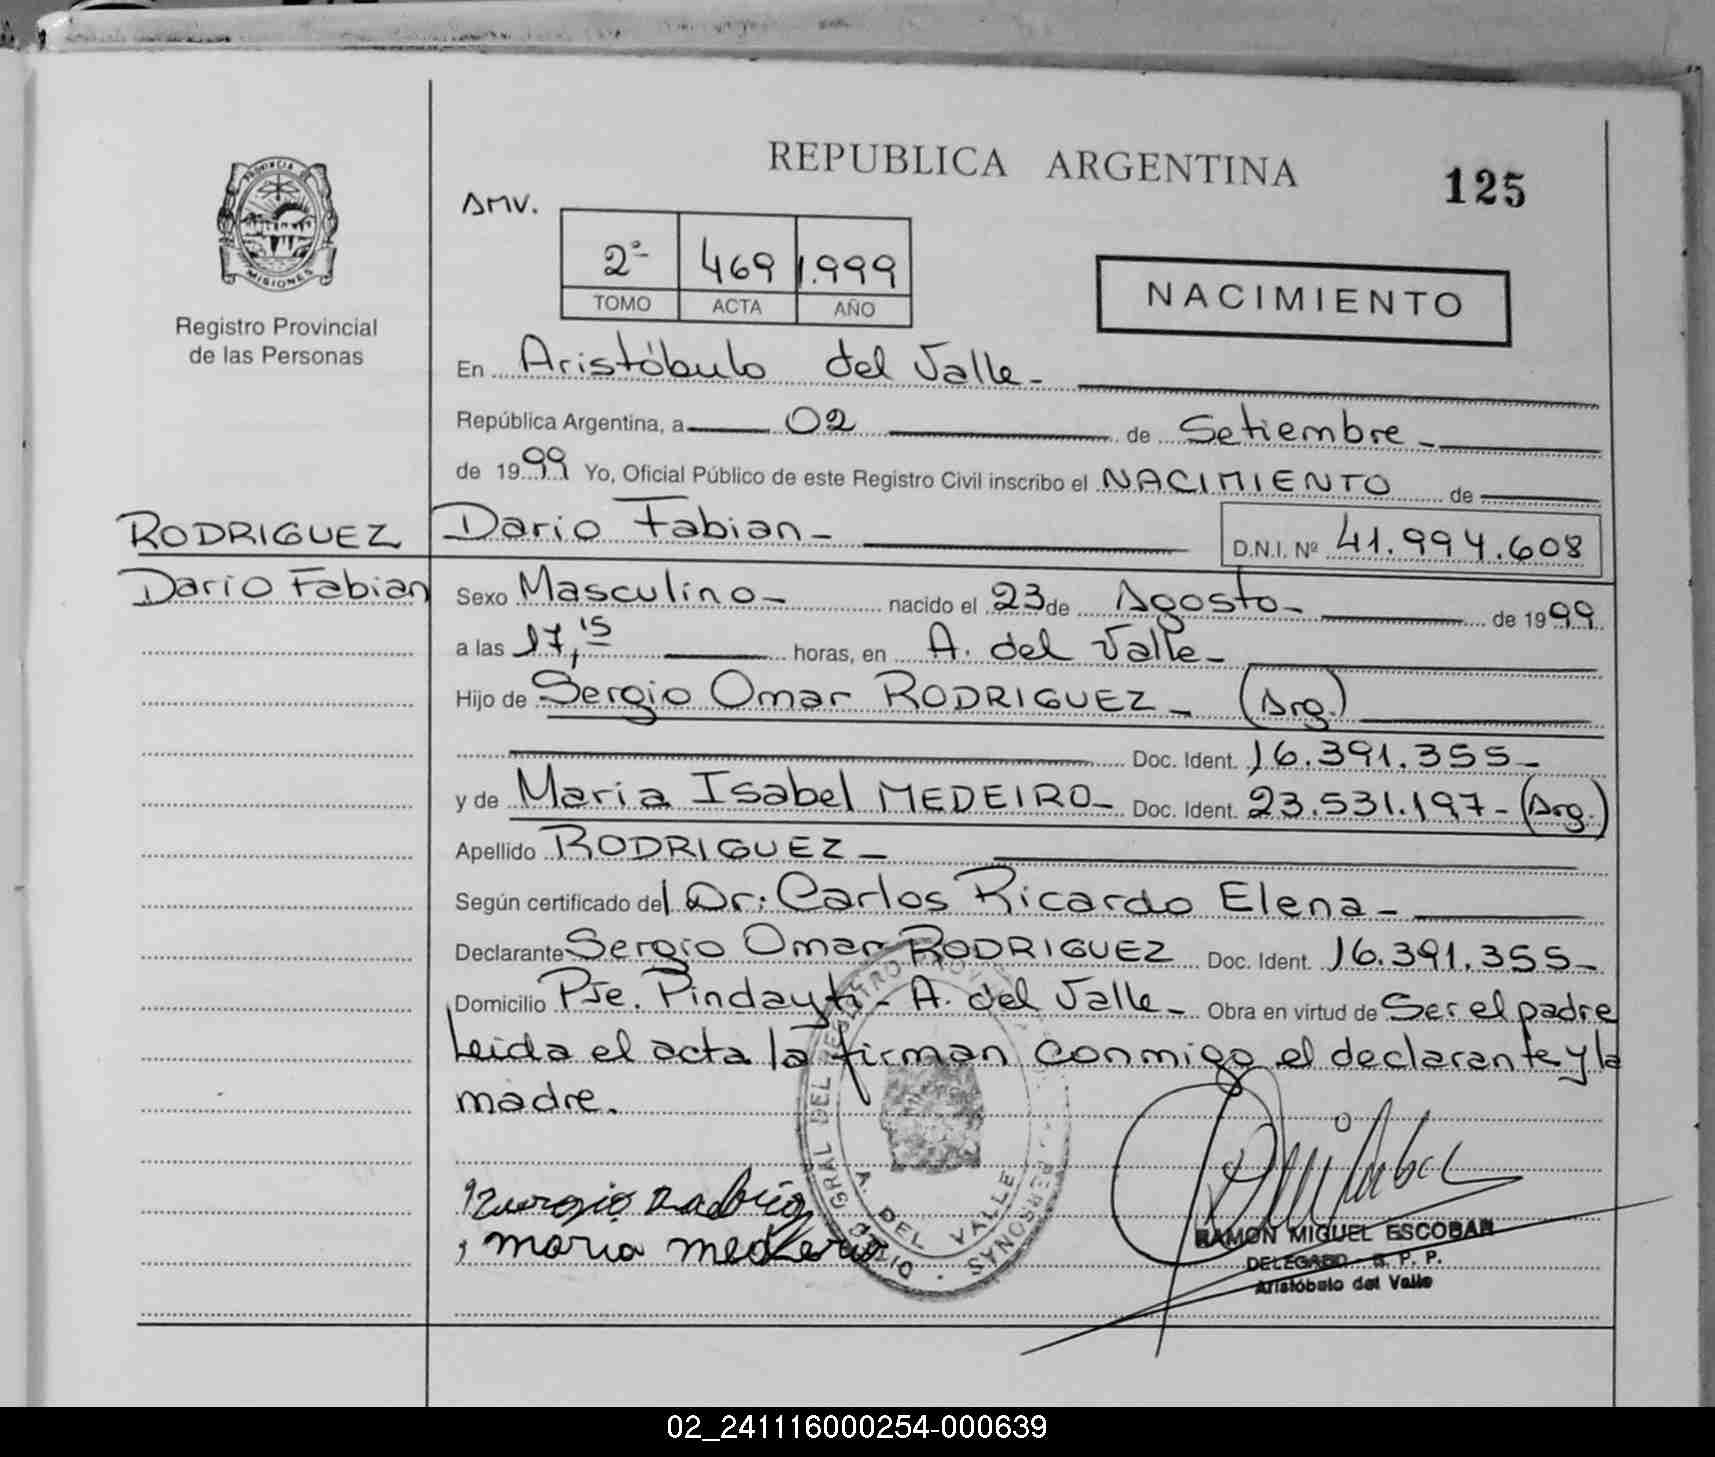 REPUBLICA ARGENTINA
125
AMV.
PROVINCIA DE
MISIONES
Registro Provincial
de las Personas
2º 469 1.999
TOMO ACTA AÑO
NACIMIENTO
En Aristóbulo del Valle-
República Argentina, a 02 de Setiembre-
de 1999 Yo, Oficial Público de este Registro Civil inscribo el NACIMIENTO de
RODRIGUEZ
Dario Fabian
Dario Fabian- D.N.I. Nº 41.994.608
Sexo Masculino- nacido el 23 de Agosto- de 1999
a las 17,15 horas, en A. del Valle-
Hijo de Sergio Omar RODRIGUEZ- (Arg.)
Doc. Ident. 16.391.355-
y de Maria Isabel MEDEIRO- Doc. Ident. 23.531.197- (Arg.)
Apellido RODRIGUEZ-
Según certificado del Dr: Carlos Ricardo Elena-
Declarante Sergio Omar RODRIGUEZ Doc. Ident. 16.391.355-
Domicilio Pje. Pindayti- A. del Valle- Obra en virtud de Ser el padre
Leida el acta la firman conmigo el declarante y la
madre.
A. DEL VALLE
maria
RAMON MIGUEL ESCOBAR
DELEGADO R. P. P.
Aristóbulo del Valle
02_241116000254-000639